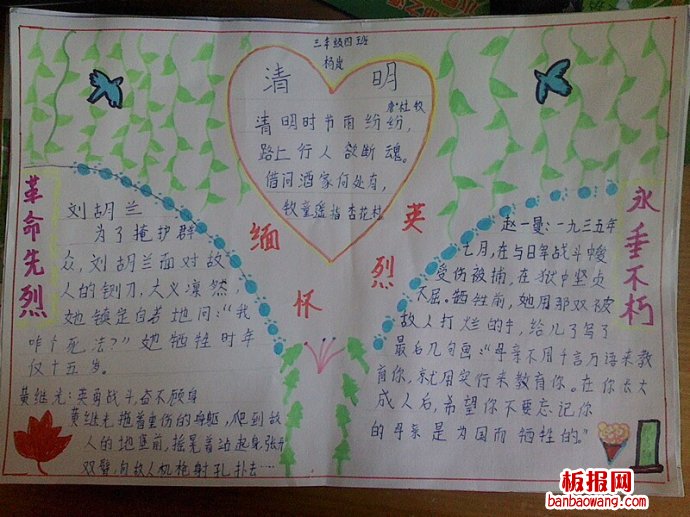 三年级四班
清 明
唐·杜牧
清明时节雨纷纷,
路上行人欲断魂。
借问酒家何处有,
牧童遥指杏花村
缅怀英烈
革命先烈
永垂不朽
刘胡兰
为了掩护群
众,刘胡兰面对敌
人的铡刀,大义凛然,
她镇定自若地问:“我
咋个死法?”她牺牲时年
仅十五岁。
黄继光:英勇战斗,奋不顾身
黄继光拖着重伤的身躯,爬到敌
人的地堡前,摇晃着站起来,张开
双臂,向敌人机枪射孔扑去…
赵一曼:一九三五年
七月,在与日军战斗中
受伤被捕,在狱中坚贞
不屈。牺牲前,她用那双被
敌人打烂的手,给儿子写了
最后几句:“母亲不用千言万语来教
育你,就用实行来教育你。在你长大
成人后,希望你不要忘记你
的母亲是为国而牺牲的。”
板报网
banbaowang.com